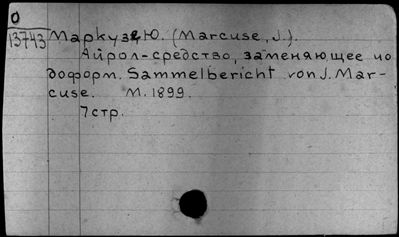 О
13743 Маркузе, Ю. (Marcuse, J.).
Айрол-средство, заменяющее ио
доформ. Sammelbericht von J. Mar-
cuse. М. 1899.
7 стр.